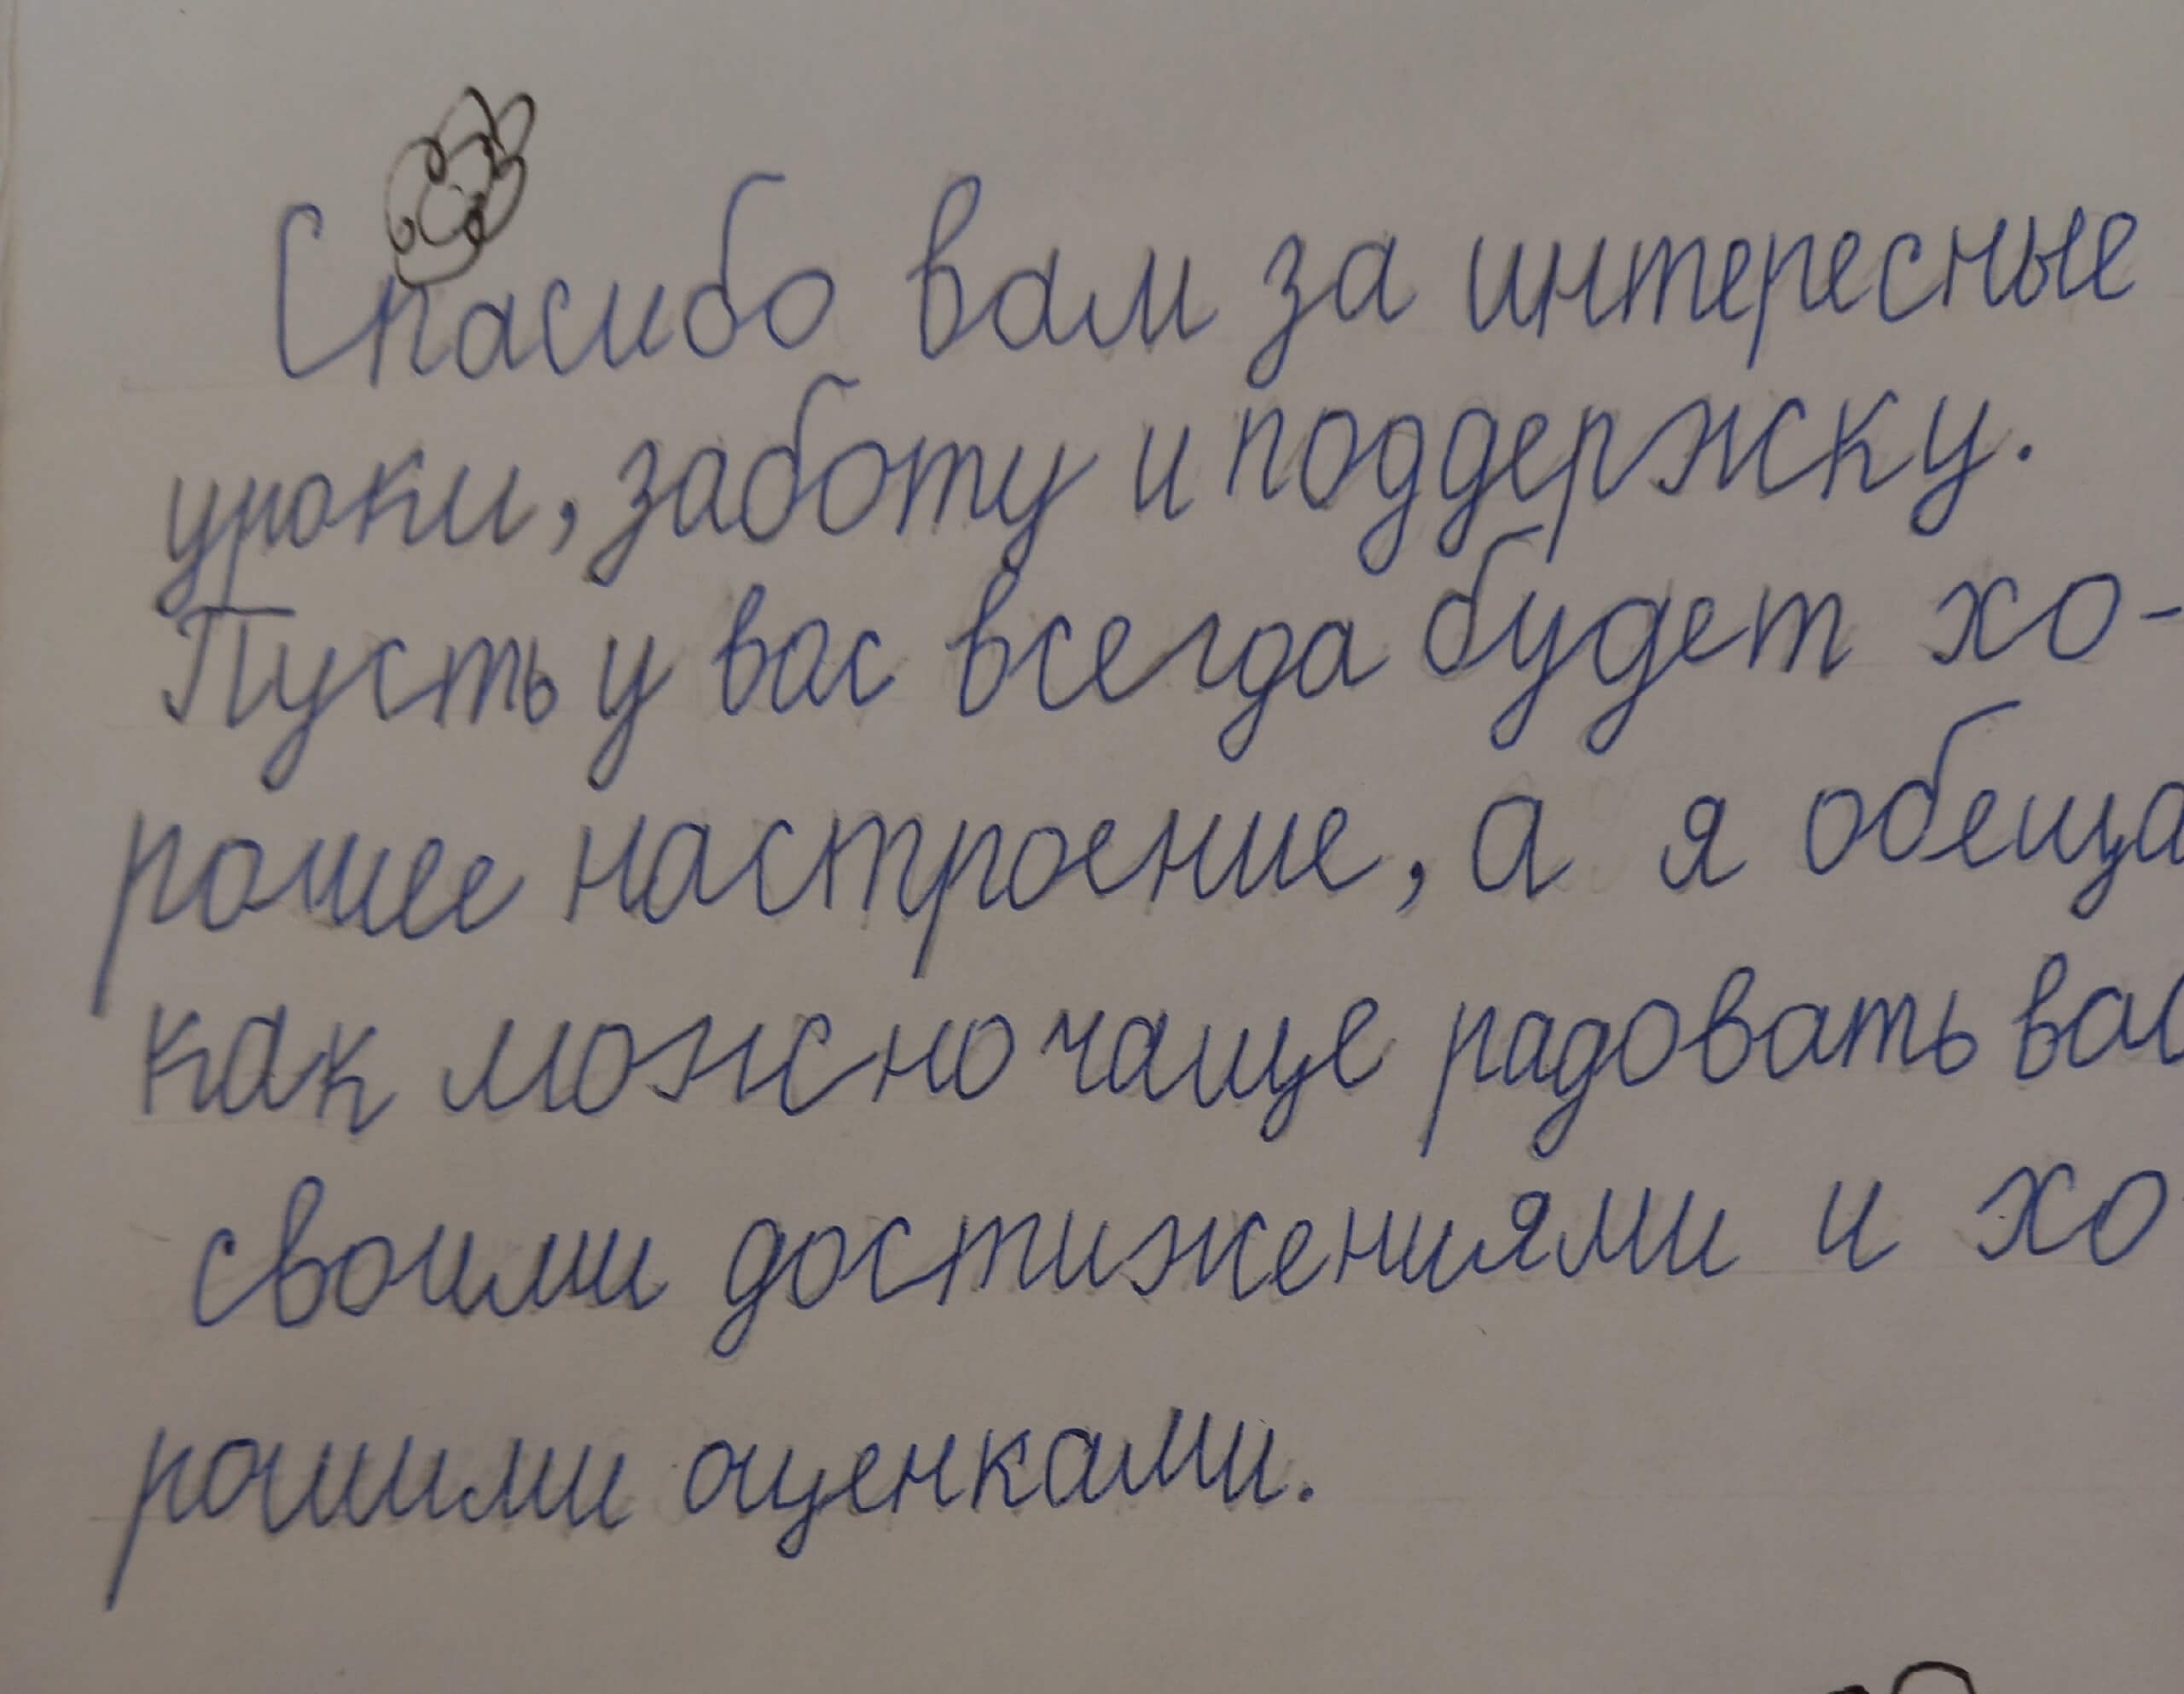 Спасибо вам за интересные
уроки, заботу и поддержку.
Пусть у вас всегда будет хо-
рошее настроение, а я обеща
как можно чаще радовать вас
своими достижениями и хо
рошими оценками.